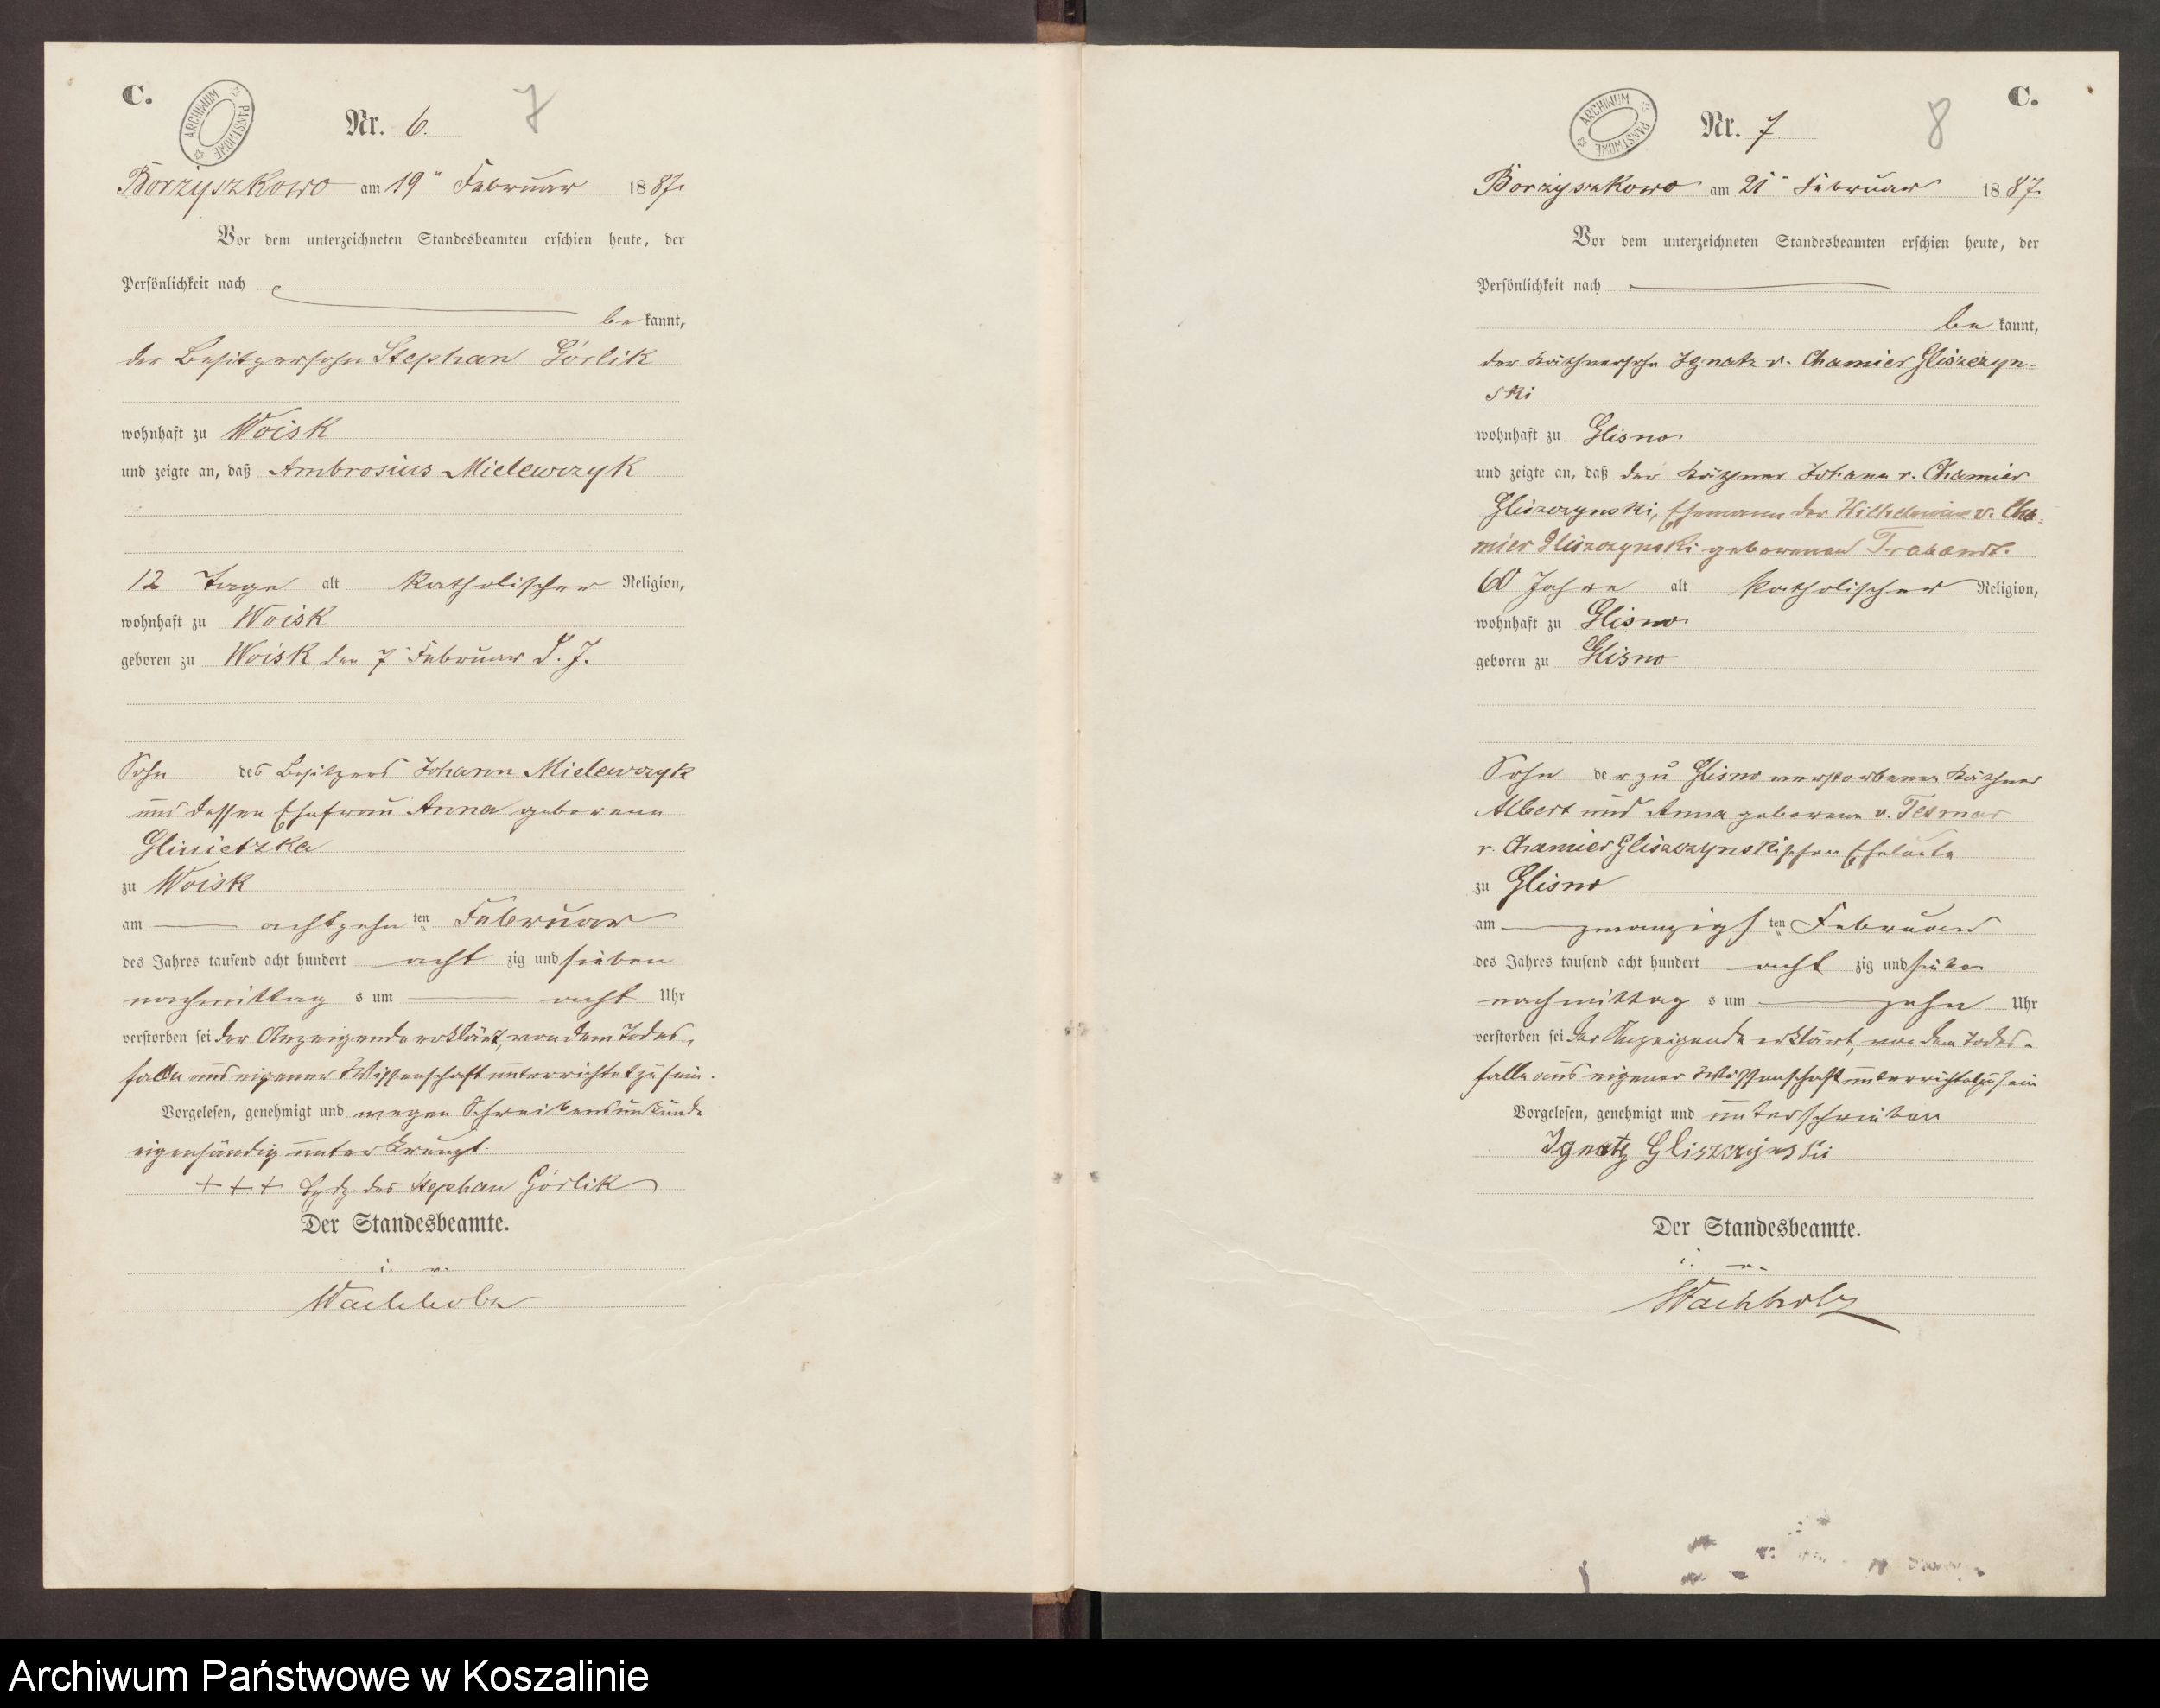 C.
ARCHIWUM PAŃSTWOWE
Nr. 6.
7
Borzyszkowo am 19" Februar 1887.
Vor dem unterzeichneten Standesbeamten erschien heute, der
Persönlichkeit nach
be kannt,
der Besitzersohn Stephan Górlik
wohnhaft zu Woisk
und zeigte an, daß Ambrosius Mielewczyk
12 Tage alt katholischer Religion,
wohnhaft zu Woisk
geboren zu Woisk den 7" Februar d. J.
Sohn des Besitzers Johann Mielewczyk
und dessen Ehefrau Anna geborene
Glinietzka
zu Woisk
am achtzehn ten Februar
des Jahres tausend acht hundert acht zig und sieben
nachmittag s um acht Uhr
verstorben sei der Anzeigende erklärt, von dem Todes-
falle aus eigener Wissenschaft unterrichtet zu sein.
Vorgelesen, genehmigt und wegen Schreibensunkunde
eigenhändig unterkreuzt
+++ Hdz. des Stephan Górlik
Der Standesbeamte.
i. v.
Wachholz
C.
ARCHIWUM PAŃSTWOWE
Nr. 7.
8
Borzyszkowo am 21" Februar 1887.
Vor dem unterzeichneten Standesbeamten erschien heute, der
Persönlichkeit nach
be kannt,
der Käthnersohn Ignatz v. Chamier Gliszczyn-
ski
wohnhaft zu Glisno
und zeigte an, daß der Käthner Johann v. Chamier
Gliszczynski, Ehemann der Wilhelmine v. Cha-
mier Gliszczynski geborenen Trabandt.
60 Jahre alt katholischer Religion,
wohnhaft zu Glisno
geboren zu Glisno
Sohn der zu Glisno verstorbenen Käthner
Albert und Anna geborene v. Tesmar
v. Chamier Gliszczynskischen Eheleute
zu Glisno
am zwanzigs ten Februar
des Jahres tausend acht hundert acht zig und sieben
nachmittag s um zehn Uhr
verstorben sei Der Anzeigende erklärt, von dem Todes-
falle aus eigener Wissenschaft unterrichtet zu sein
Vorgelesen, genehmigt und unterschrieben
Ignatz Gliszczynski
Der Standesbeamte.
i. v.
Wachholz
Archiwum Państwowe w Koszalinie